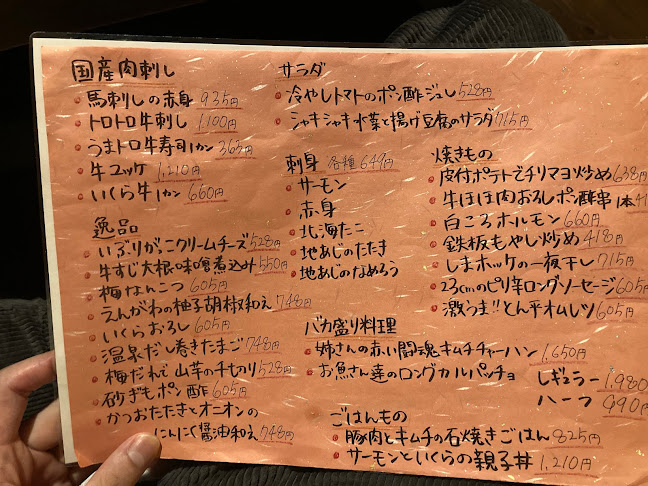 国産肉刺し
馬刺しの赤身 935円
トロトロ牛刺し 1,100円
うまトロ牛寿司1カン 365円
牛ユッケ 1,210円
いくら牛1カン 660円
逸品
いぶりがっこクリームチーズ 528円
牛すじ大根味噌煮込み 550円
梅なんこつ 605円
えんがわの柚子胡椒和え 748円
いくらおろし 605円
温泉だし巻きたまご 748円
梅だれで山芋の千切り 528円
砂ぎもポン酢 605円
かつおたたきとオニオンの
にんにく醤油和え 748円
サラダ
冷やしトマトのポン酢ジュレ 528円
シャキシャキ水菜と揚げ豆腐のサラダ 715円
刺身 各種 649円
サーモン
赤身
北海たこ
地あじのたたき
地あじのなめろう
焼きもの
皮付ポテトでチリマヨ炒め 638円
牛ほほ肉おろしポン酢串1本
白ころホルモン 660円
鉄板もやし炒め 418円
しまホッケの一枚干し 715円
23cmのピリ辛ロングソーセージ 605円
激うま!!とん平オムレツ 605円
バカ盛り料理
姉さんの赤い闘魂キムチチャーハン 1,650円
お魚さん達のロングカルパッチョ レギュラー 1,980
ハーフ 990円
ごはんもの
豚肉とキムチの石焼きごはん 825円
サーモンといくらの親子丼 1,210円